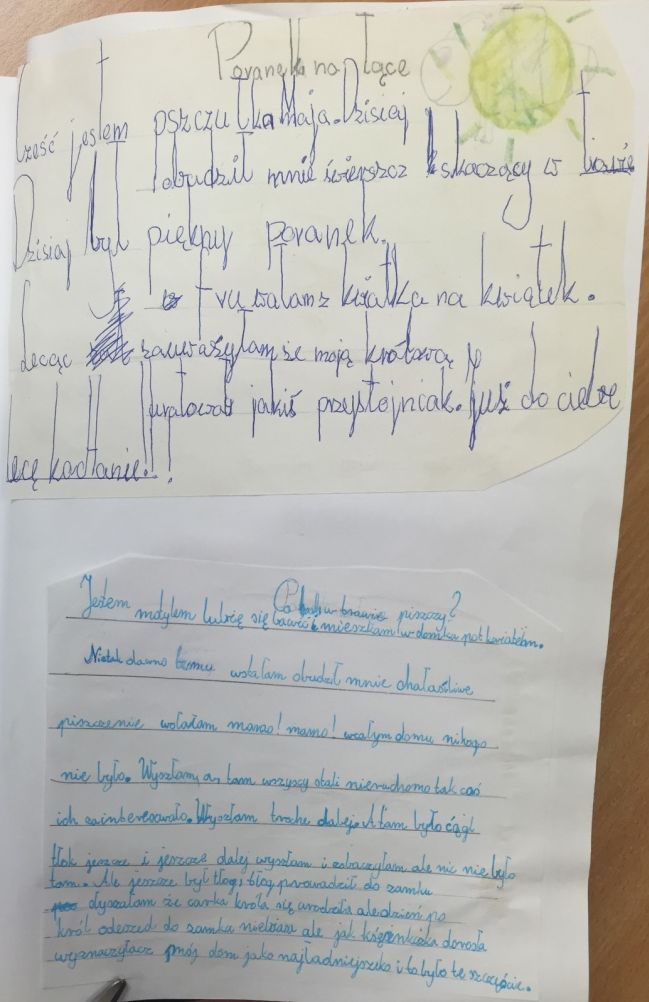 Poranek na łące
Cześć jestem pszczułka Maja. Dzisiaj
obudził mnie świerszcz skaczący w
Dzisiaj był piękny poranek.
z kwiatka na kwiatek.
Lecąc zauważyłam że moją krótową
jakiś przystojniak. Już do ciebie
lecę kochanie!!
Co w trawie piszczy?
Jestem motylem lubię się bawić i mieszkam w domku pot kwiatem.
Nie tak dawno temu wstałam obudził mnie chałaśliwe
piszczenie wołałam mamo! mamo! wcałym domu nikogo
nie było. Wyszłam, a tam wszyscy stali nieruchomo tak coś
ich zainteresowało. Wyszłam troche dalej. A tam było ciągl
tłok jeszcze i jeszcze dalej wyszłam i zobaczyłam ale nic nie było
tam. Ale jeszcze był tłog i tłog prowadził do zamku
dyszałam że carka króla się urodziła ale dzień po
król odeszed do zamka ale jak dorosła
mój dom jako najładniejszeko i to było te szczęście.